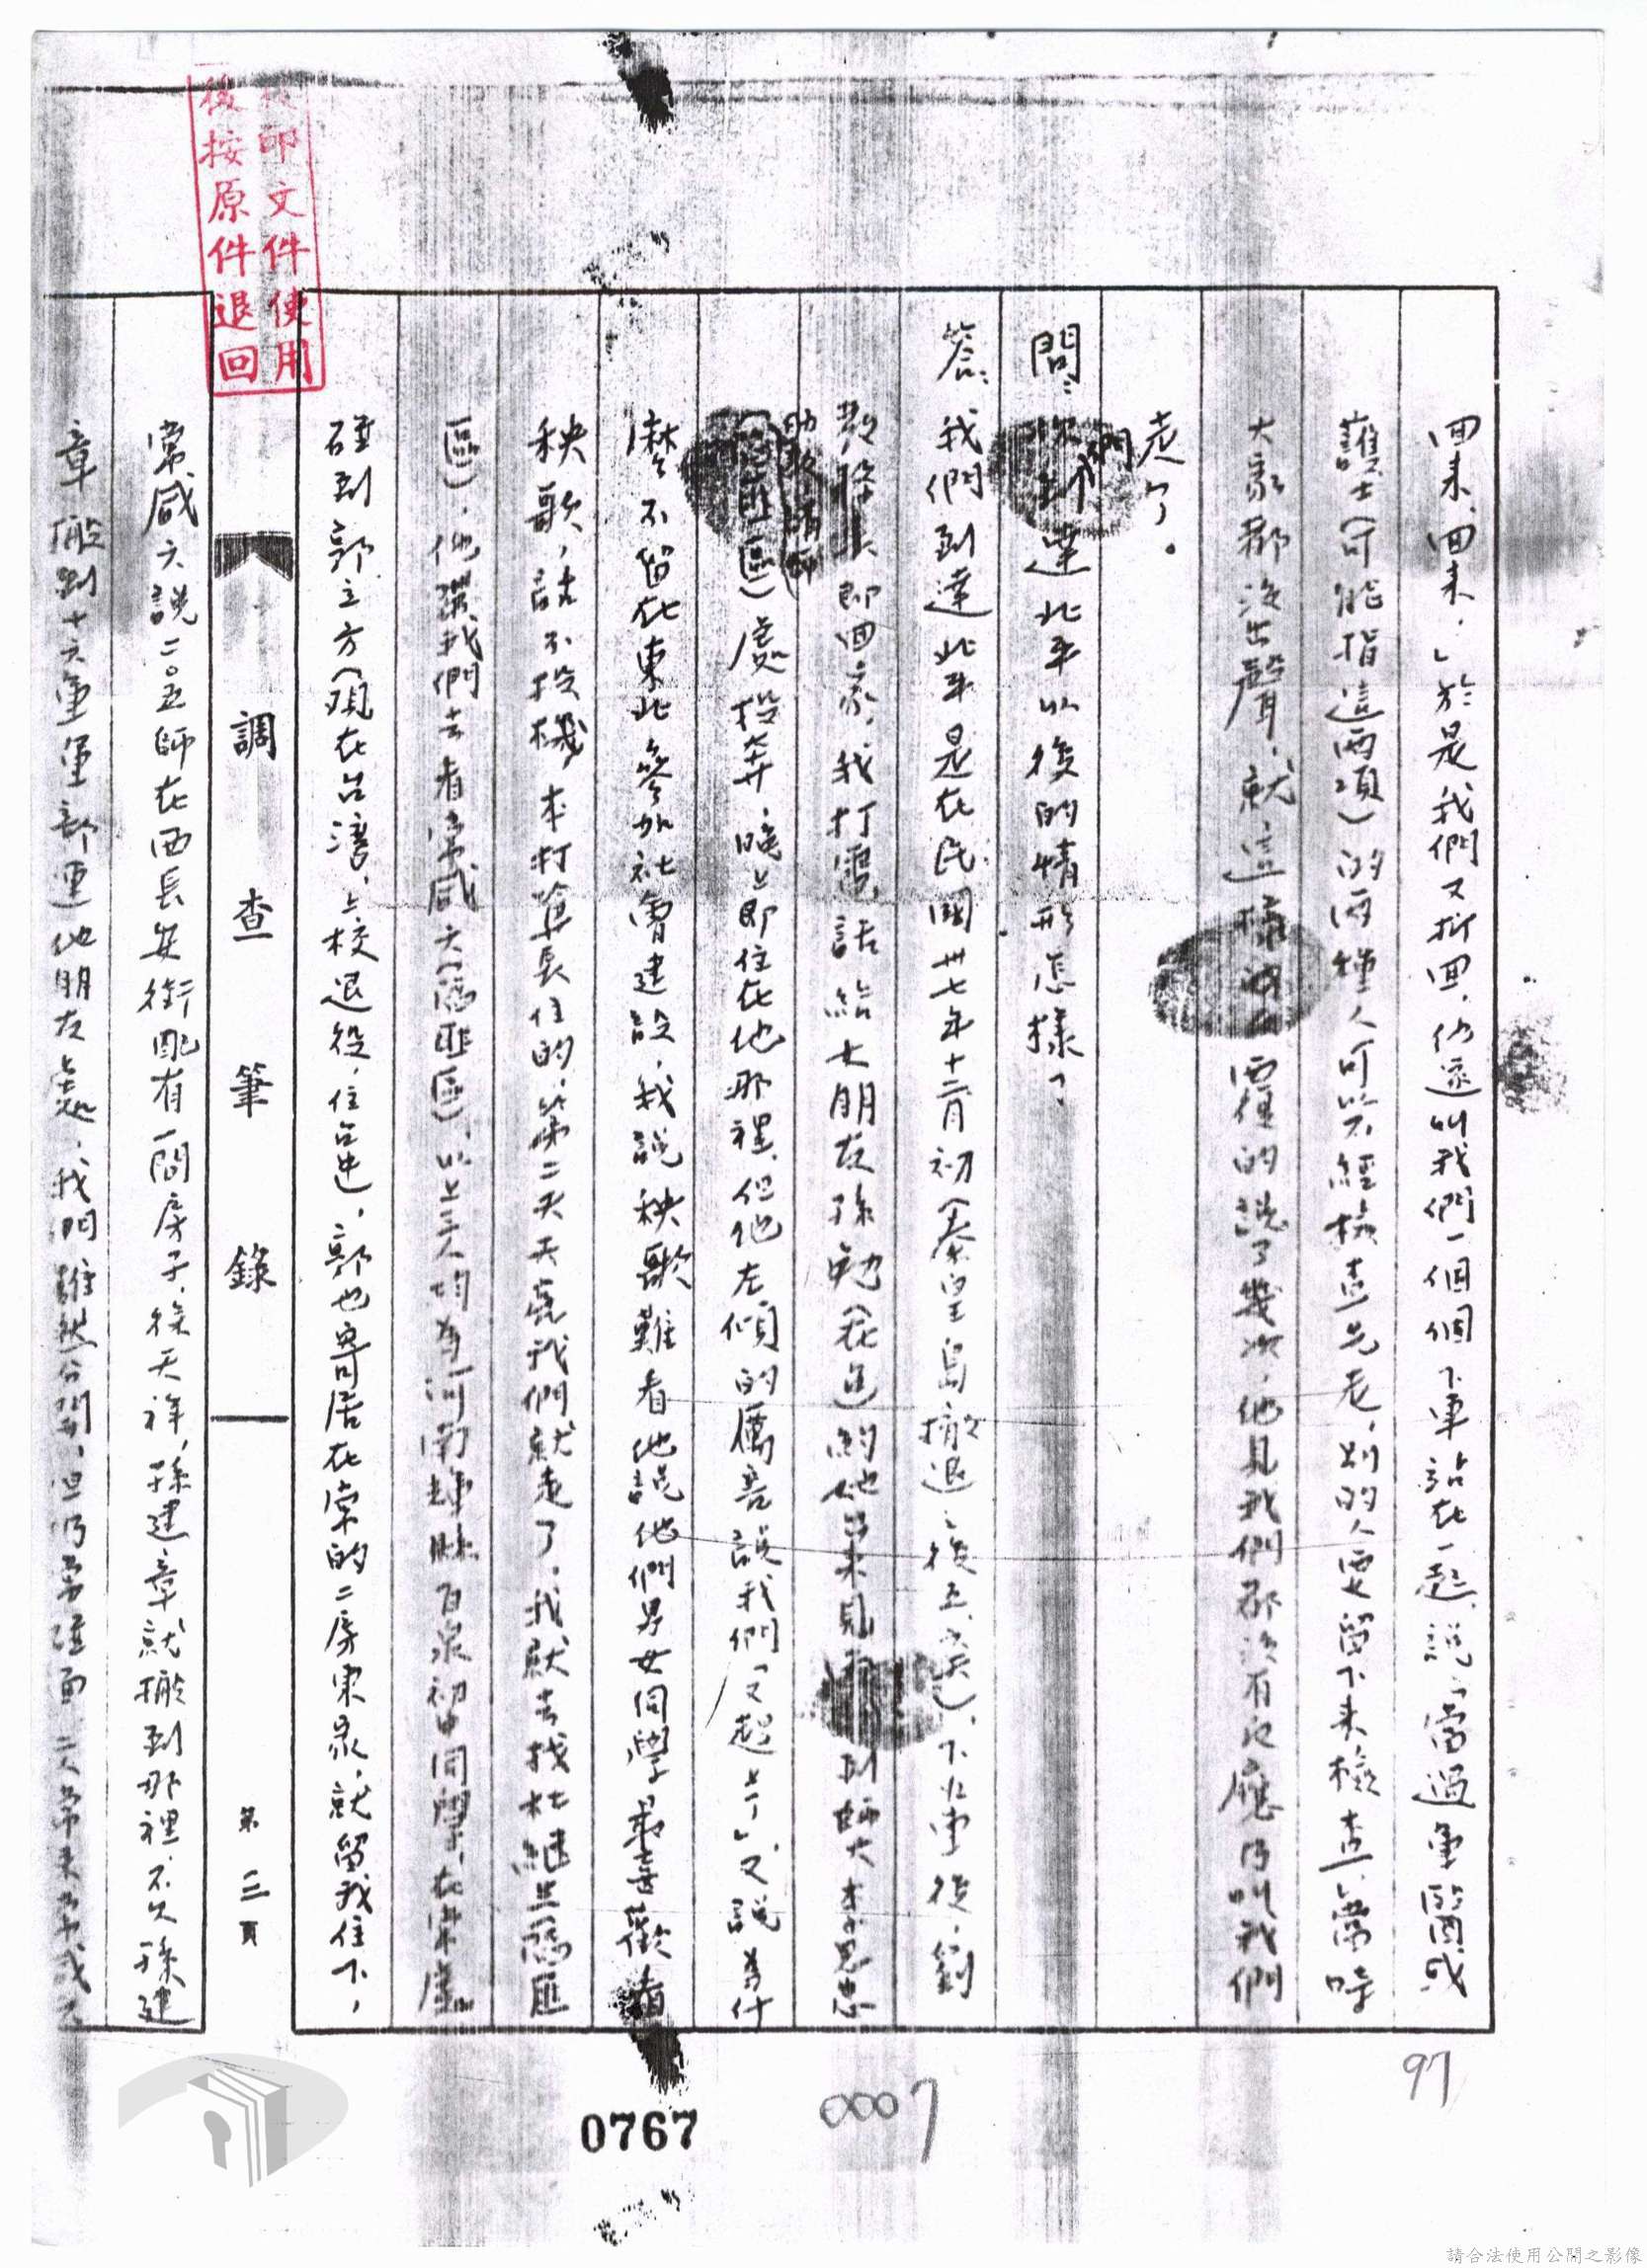 回來、回來，」於是我們又折回，仍逐叫我們一個個下車站在一起，說「當過軍醫或
護士（可能指這兩項）的兩種人可以不經檢查先走，別的人要留下來檢查」當時
大家都沒出聲，就這樣 覆的說了幾次，他見我們都沒有反應乃叫我們
走了。
問： 們到達北平以後的情形怎樣？
答：我們到達北平是在民國卅七年十二月初（秦皇島撤退之後五、六天），下火車後，劉
即回家，我打電話給大朋友孫勉（在逃）約他 來見面 到師大李恩忠
助教 匪區）處投奔，晚上即住在他那裡，但他左傾的厲害說我們「又起上了」又說為什
麼不留在東北參加社會建設，我說秧歌難看他說他們男女同學最喜歡看
秧歌，話不投機，本打算長住的，第二天天亮我們就走了，我就去找杜繼 陷匪
區），他讓我們去看常咸六（陷匪區），以上三人均為河南輝縣百泉初中同學，在常處
碰到郭立方（現在台灣，上校退役，住台北），郭也寄居在常的二房東家，就留我住下，
調查筆錄
第三頁
常咸六說二〇五師在西長安街配有一間房子，徐天祥，孫建章就搬到那裡，不久孫建
章搬到十六軍軍部 他朋友處，我們雖然分開，但仍常碰面，
後按原件退回
印文件使用
97
0007
0767
請合法使用公開之影像